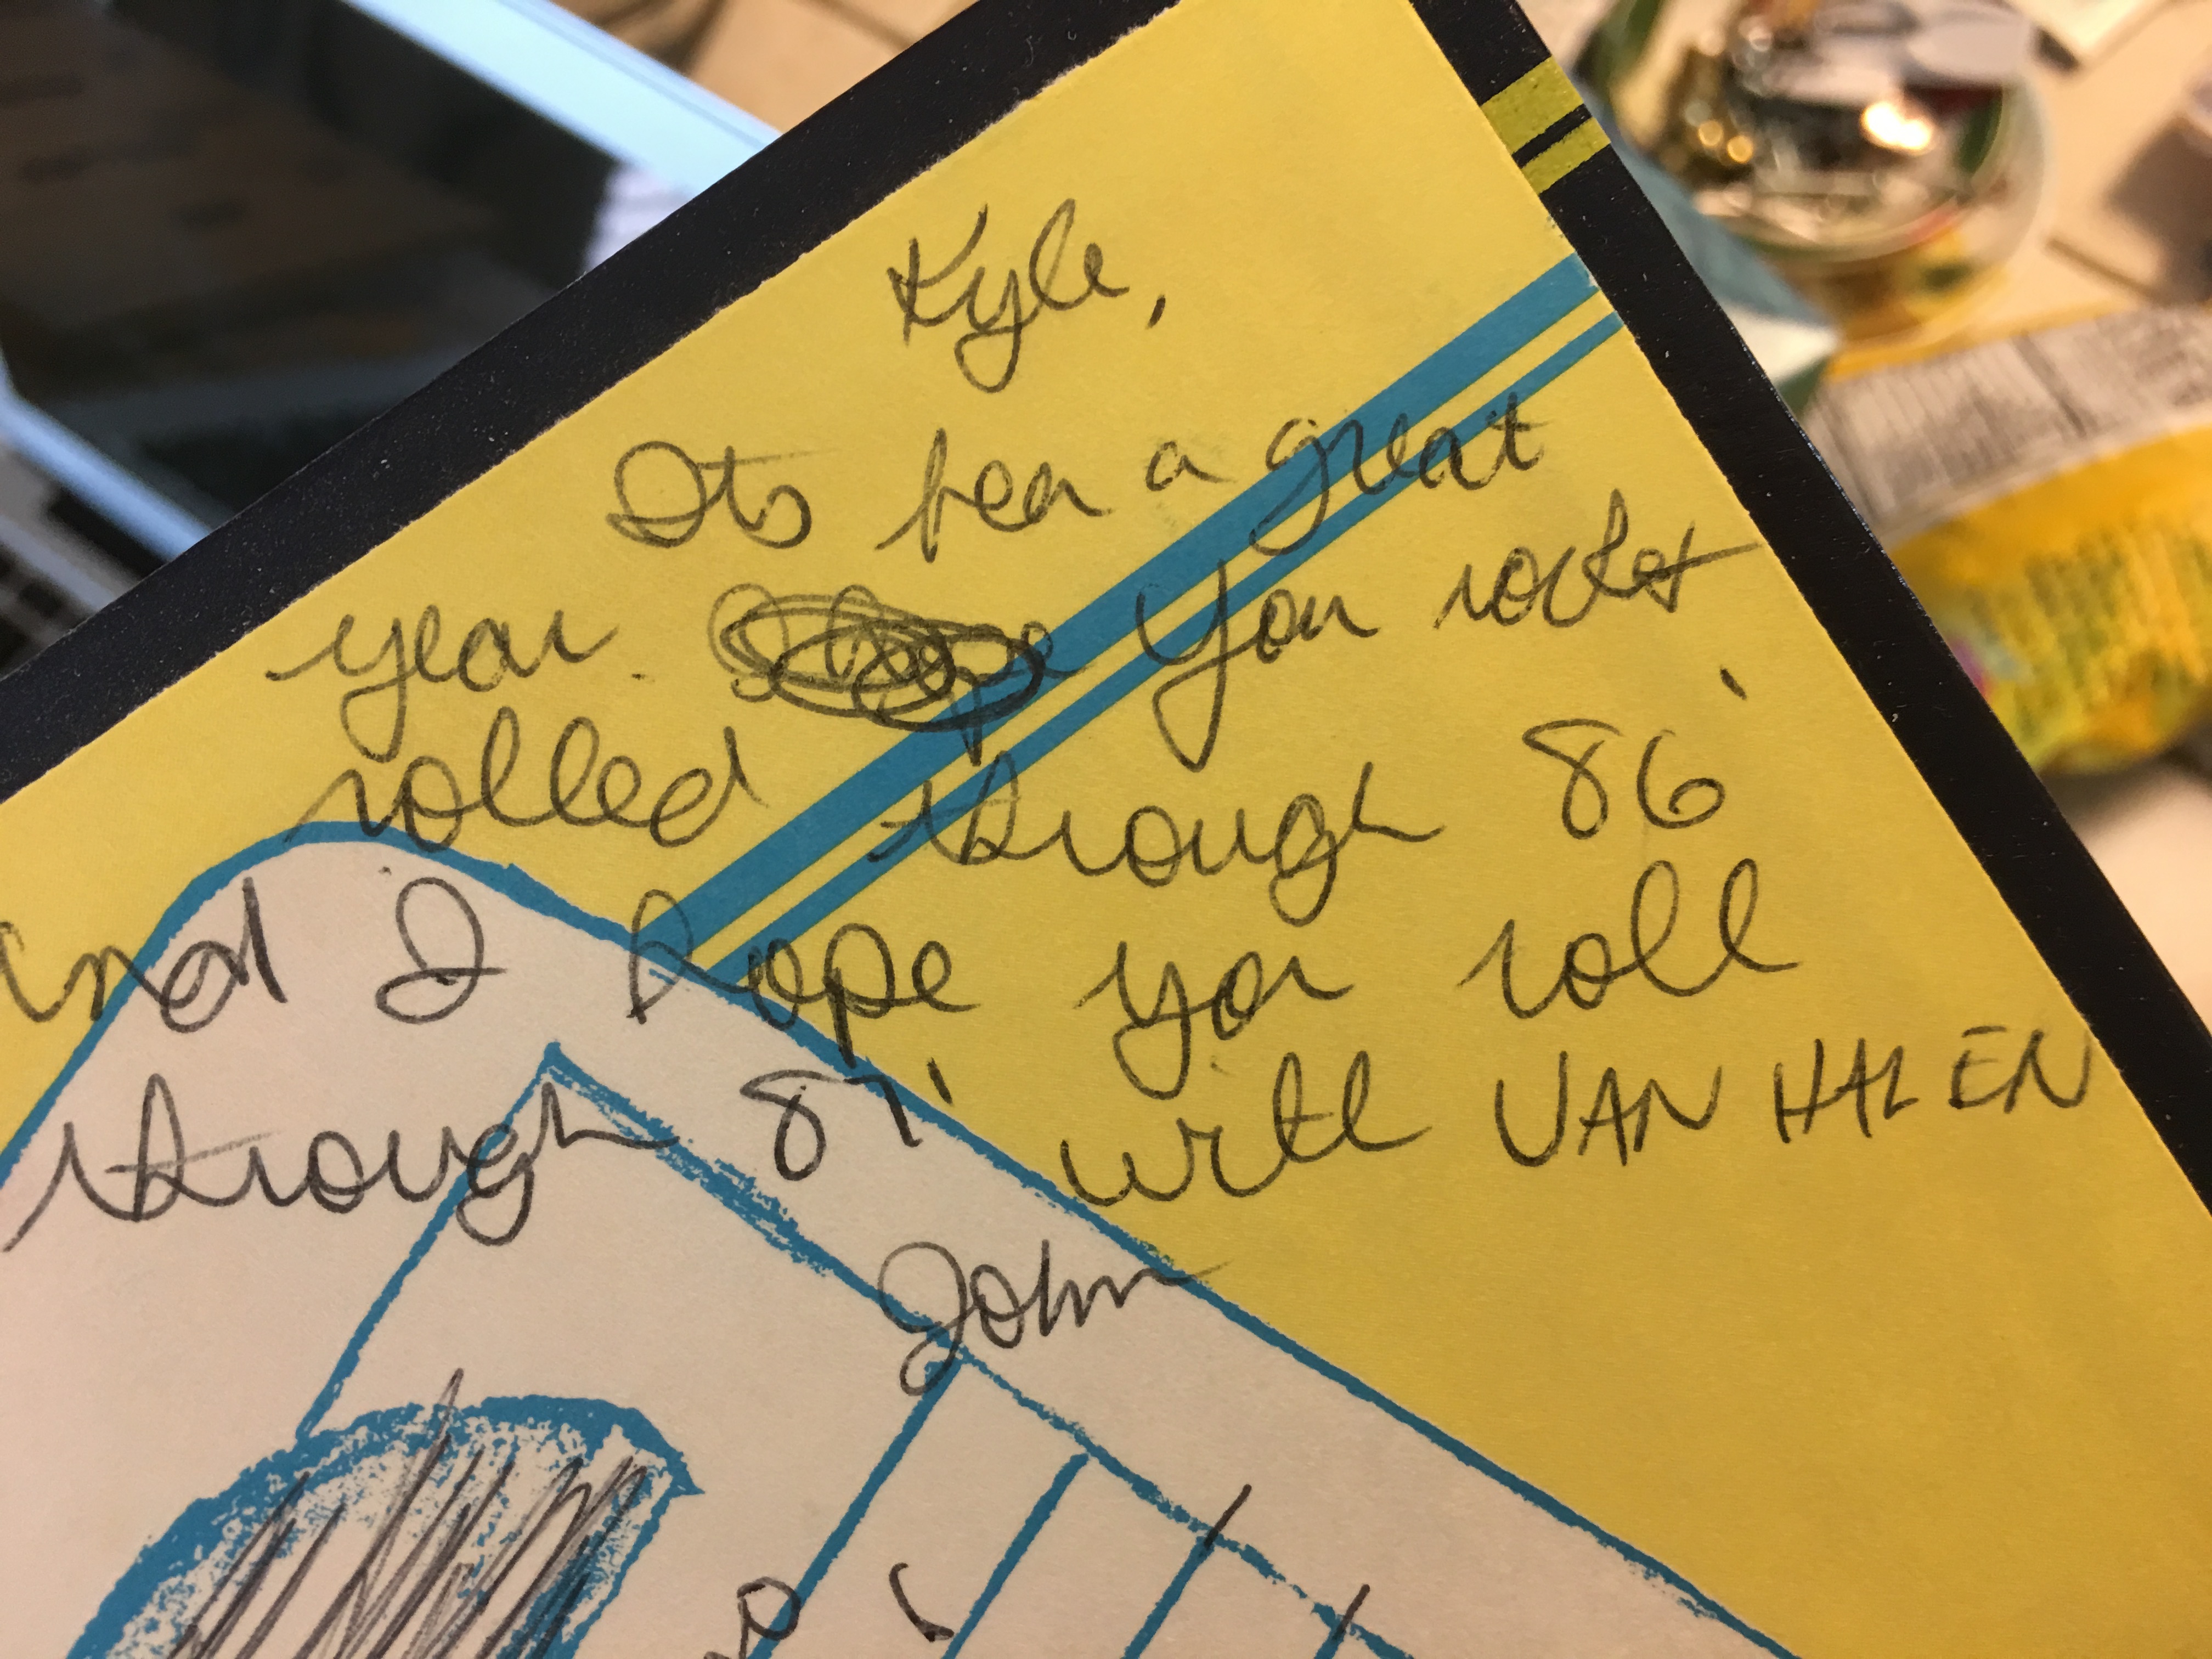 Kyle,
Its been a great
year. You rocket
rolled through 86'
and I hope you roll
through 87' with VAN HALEN
John